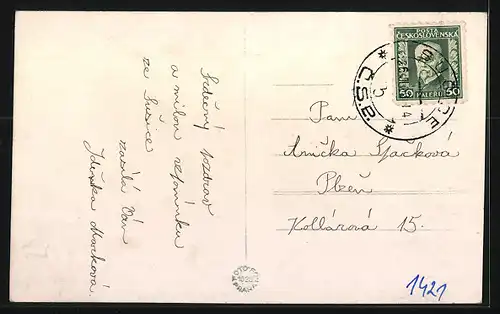 Srdečný pozdrav
a milou vzpomínku
ze Sušice
zasílá Vám
Zdeňka Marková.
POŠTA
ČESKOSLOVENSKÁ
50 50
HALÉŘŮ
Č.S.R.
Paní
Anička Špačková
Plzeň
Kollárová 15.
1421